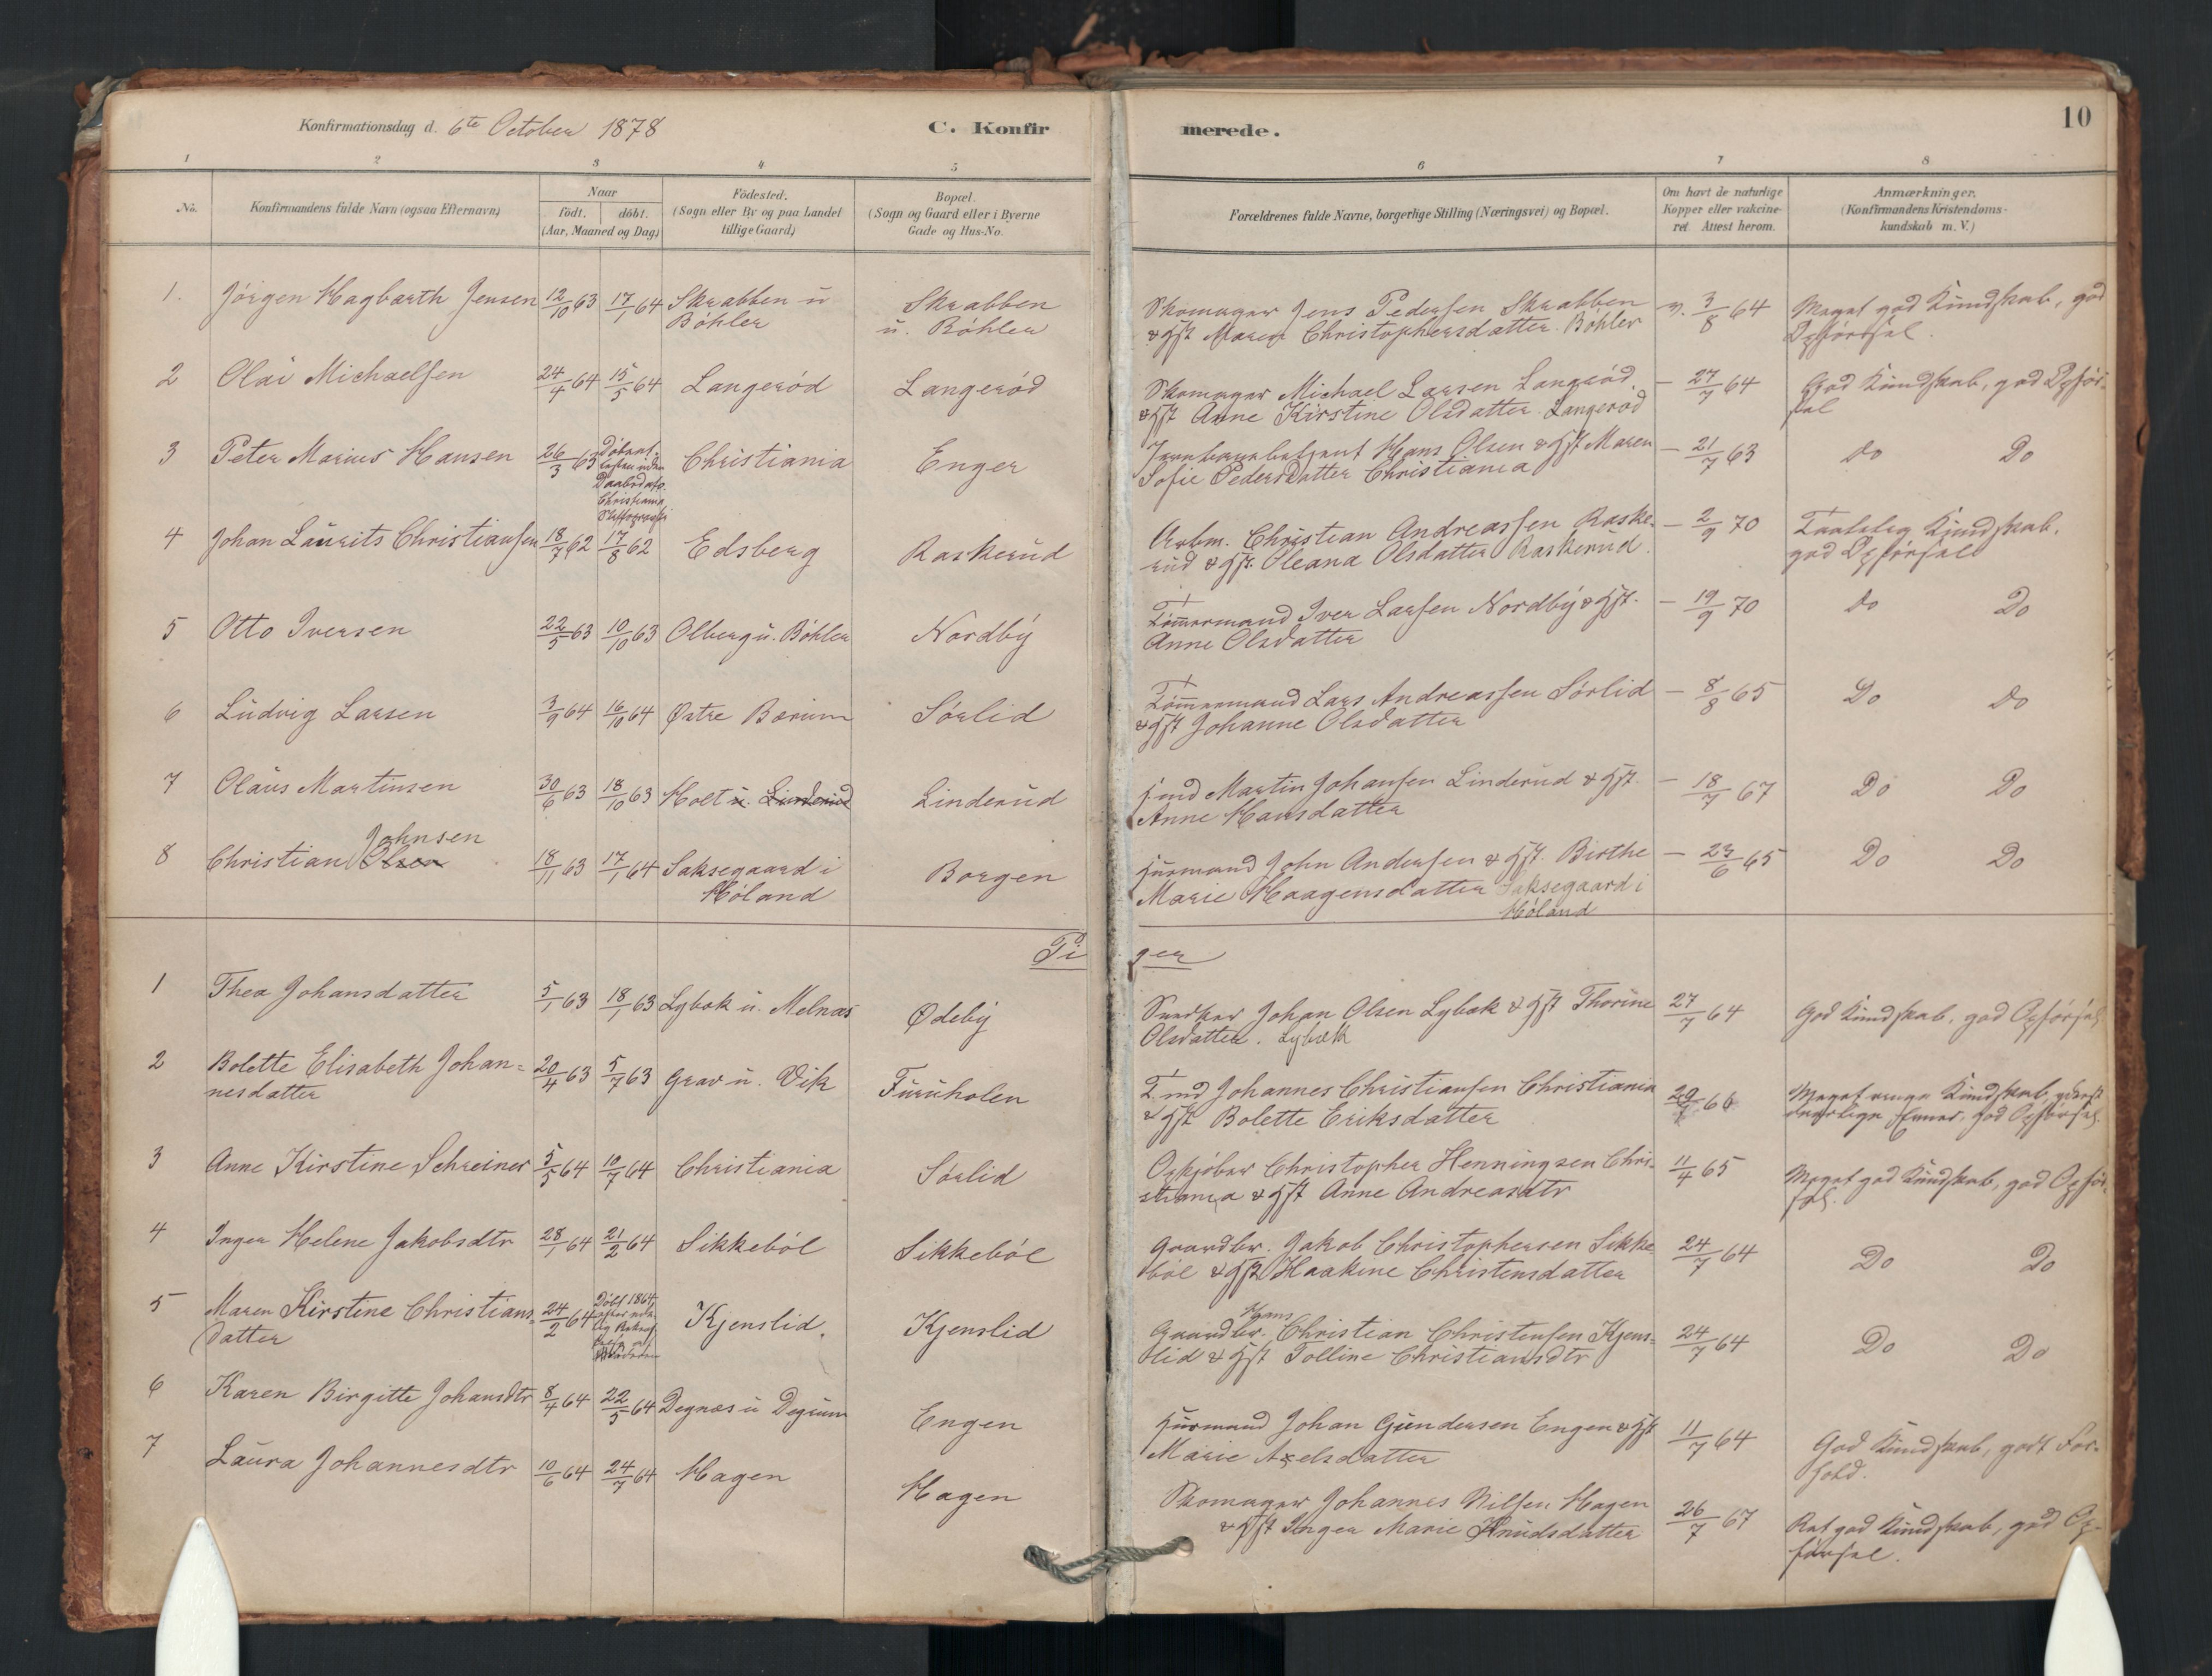 Konfirmationsdag d. 6te October 1878
C. Konfirmerede.
10
1 2 3 4 5 6 7 8
No.
Konfirmandens fulde Navn (ogsaa Efternavn)
Naar
født. døbt.
(Aar, Maaned og Dag)
Födested.
(Sogn eller By og paa Landet
tillige Gaard)
Bopæl.
(Sogn og Gaard eller i Byerne
Gade og Hus-No.
Forældrenes fulde Navne, borgerlige Stilling (Næringsvei) og Bopæl.
Om havt de naturlige
Kopper eller vakcine-
ret. Attest herom.
Anmærkninger.
(Konfirmandens Kristendoms-
kundskab m. V.)
1. Jörgen Hagbarth Jensen 12/10 63 17/1 64 Skrabben u Böhler Skrabben u. Böhler
Skomager Jens Pedersen Skrabben v. 3/8 64 Meget god Kundskab, god
& Hst Maren Christophersdatter Böhler Opförsel.
2 Olai Michaelsen 24/4 64 15/5 64 Langeröd Langeröd
Skomager Michael Larsen Langeröd - 27/7 64 God Kundskab, god Opför-
& Hst Anne Kirstine Olsdatter Langeröd sel
3 Peter Marius Hansen 26/3 63 Christiania Enger
Jernbanebetjent Hans Olsen & Hst Maren - 21/7 63 do Do
Sofie Pedersdatter Christiania
4 Johan Laurits Christiansen 18/7 62 17/8 62 Edsberg Raskerud
Arbm. Christian Andreassen Raske- - 2/9 70 Taalelig Kundskab.
rud & Hst. Oleana Olsdatter Raskerud. god Opförsel
5 Otto Iversen 22/5 63 10/10 63 Olberg u. Böhler Nordby
Tömmermand Iver Larsen Nordby & Hst. - 19/9 70 do Do
Anne Olsdatter
6 Ludvig Larsen 3/9 64 16/10 64 Østre Bærum Sörlid
Tömmermand Lars Andreassen Sörlid - 8/8 65 Do do
& Hst Johanne Olsdatter
7 Olaus Martinsen 30/6 63 18/10 63 Holt u. Linderud Linderud
Hmd Martin Johansen Linderud & Hst. - 18/7 67 Do Do
Anne Hansdatter
8 Christian Olsen Johnsen 18/11 63 17/1 64 Saksegaard i Höland Borgen
Husmand John Andersen & Hst. Birthe - 23/6 65 Do Do
Marie Haagensdatter Saksegaard i
Höland
Piger
1 Thea Johansdatter 5/1 63 18/1 63 Lybæk u. Melnæs Ødeby
Snedker Johan Olsen Lybæk & Hst Thorine 27/7 64 God Kundskab, god Opförsel
Olsdatter. Lybæk
2 Bolette Elisabeth Johan= 20/4 63 5/7 63 Grav u. Vik Furuholen
nesdatter
T. md Johannes Christiansen Christiania 66 Meget ringe Kundskab,
& Hst Bolette Eriksdatter Evner, god Opförsel
3 Anne Kirstine Schreiner 5/5 64 10/7 64 Christiania Sörlid
Opkjöber Christopher Henningsen Chri- 11/4 65 Meget god Kundskab, god Opför-
stiania & Hst Anne Andreasdtr sel.
4 Inger Helene Jakobsdtr 28/1 64 21/2 64 Sikkeböl Sikkeböl
Gaardbr. Jakob Christophersen Sikke 24/7 64 Do Do
böl & Hst Haakine Christensdatter
5 Maren Kirstine Christians- 24/2 64 Döbt 1864 Kjenslid. Kjenslid
datter
Gaardbr. Hans Christian Christensen Kjens- 24/7 64 Do Do
lid & Hst Tolline Christiansdtr
6 Karen Birgitte Johansdtr 8/4 64 22/5 64 Degnæs u Degrum Engen
Husmand Johan Gundersen Engen & Hst 11/7 64 God Kundskab, godt For-
Marie Axelsdatter hold.
7 Laura Johannesdtr 10/6 64 24/7 64 Hagen Hagen
Skomager Johannes Nilsen Hagen 26/7 67 Ret god Kundskab, god Op-
& Hst Inger Marie Knudsdatter försel.